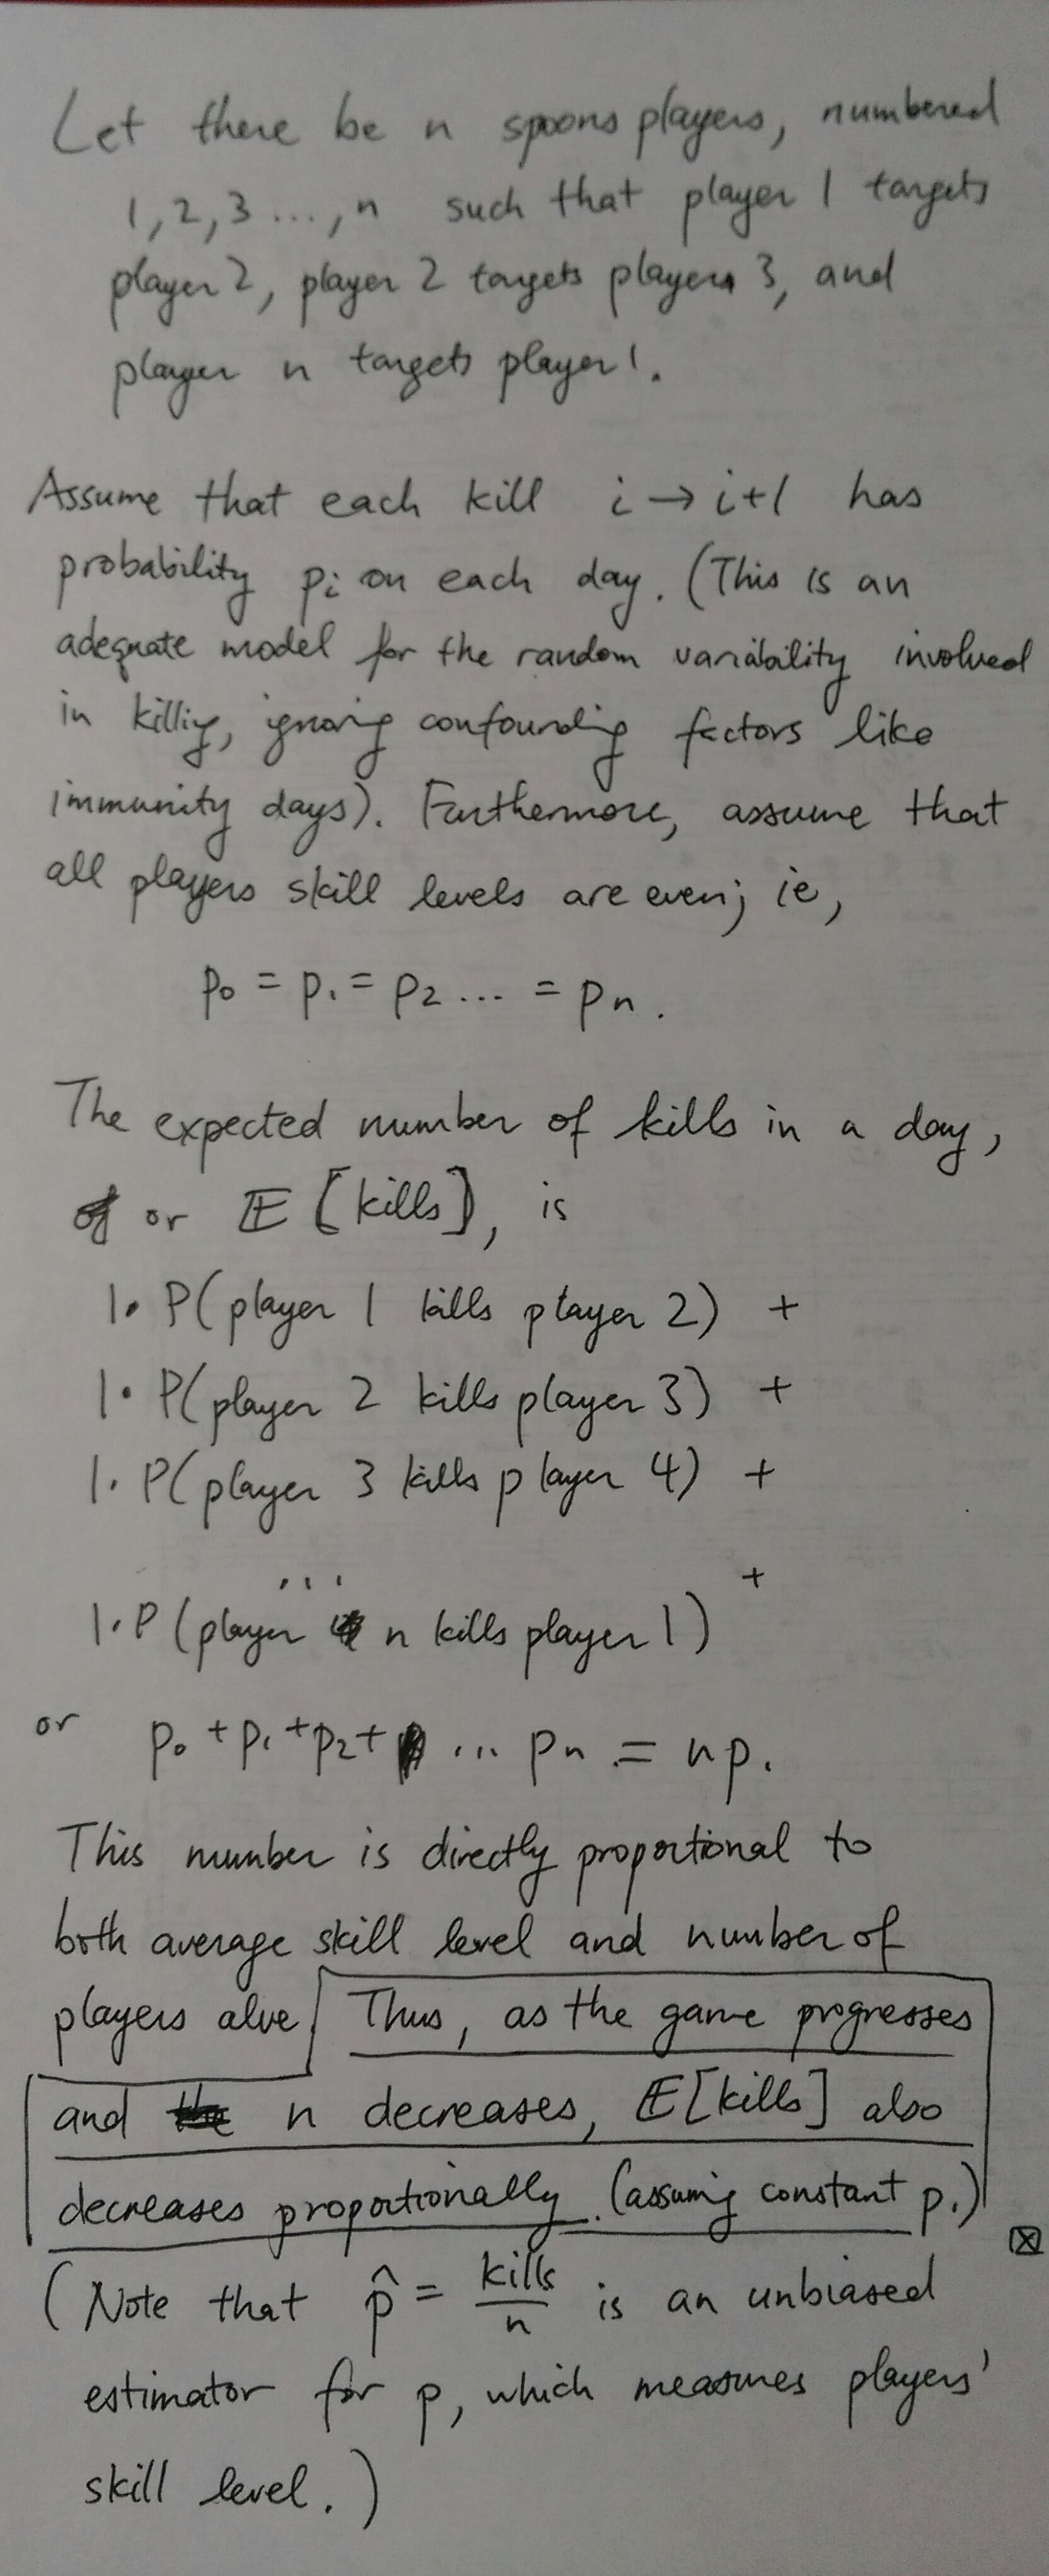 Let there be n spoons players, numbered
1, 2, 3 ..., n such that player 1 targets
player 2, player 2 targets player 3, and
player n targets player 1.
Assume that each kill i → i+1 has
probability pᵢ on each day. (This is an
adequate model for the random variability involved
in killing, ignoring confounding factors like
immunity days). Furthermore, assume that
all players skill levels are even; ie,
p₀ = p₁ = p₂ ... = pₙ.
The expected number of kills in a day,
or 𝔼[kills], is
1· P(player 1 kills player 2) +
1· P(player 2 kills player 3) +
1· P(player 3 kills player 4) +
... +
1·P(player n kills player 1)
or p₀ + p₁ + p₂ + ... pₙ = np.
This number is directly proportional to
both average skill level and number of
players alve Thus, as the game progresses
and n decreases, 𝔼[kills] also
decreases proportionally. (assuming constant p.)
(Note that p̂ = kills/n is an unbiased
estimator for p, which measures players'
skill level.)